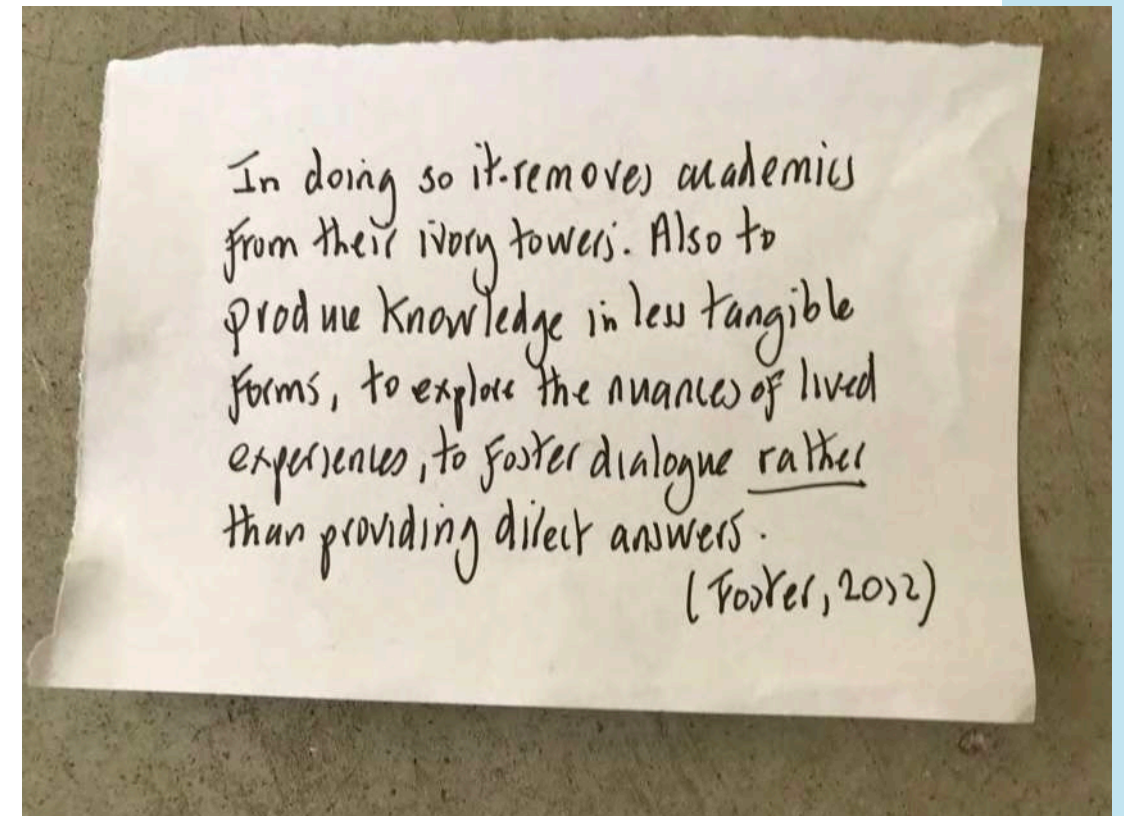 In doing so it removes academics
from their ivory towers. Also to
produce knowledge in less tangible
forms, to explore the nuances of lived
experiences, to foster dialogue rather
than providing direct answers.
(Foster,